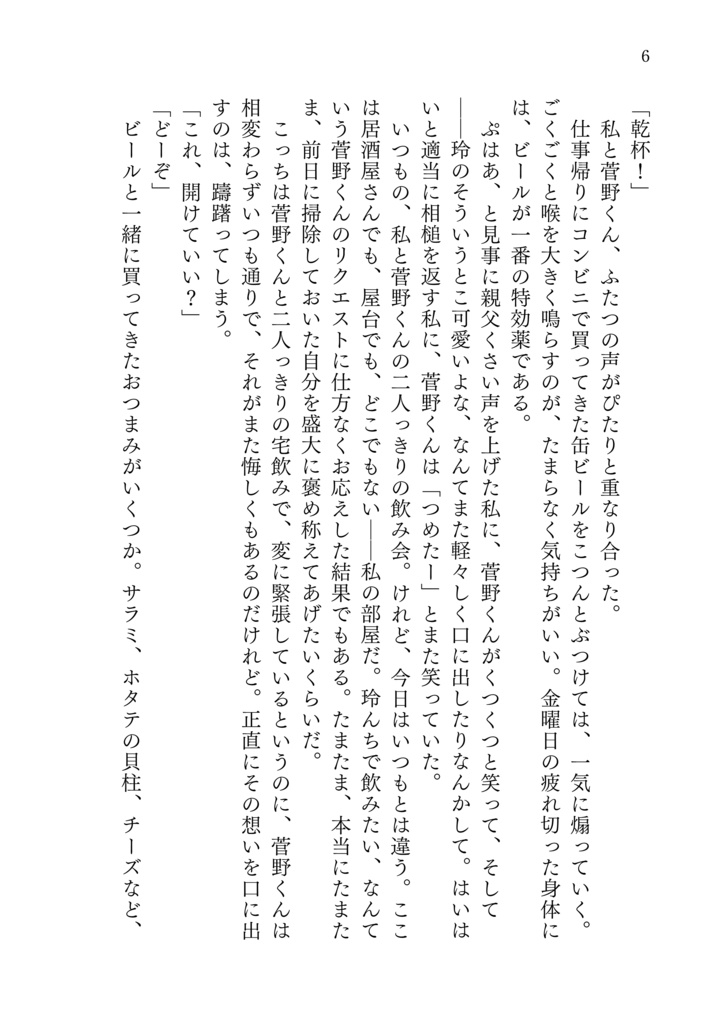 6
「乾杯！」
私と菅野くん、ふたつの声がぴたりと重なり合った。
仕事帰りにコンビニで買ってきた缶ビールをこつんとぶつけては、一気に煽っていく。
ごくごくと喉を大きく鳴らすのが、たまらなく気持ちがいい。金曜日の疲れ切った身体に
は、ビールが一番の特効薬である。
ぷはあ、と見事に親父くさい声を上げた私に、菅野くんがくつくつと笑って、そして
――玲のそういうとこ可愛いよな、なんてまた軽々しく口に出したりなんかして。はいは
いと適当に相槌を返す私に、菅野くんは「つめたー」とまた笑っていた。
いつもの、私と菅野くんの二人っきりの飲み会。けれど、今日はいつもとは違う。ここ
は居酒屋さんでも、屋台でも、どこでもない――私の部屋だ。玲んちで飲みたい、なんて
いう菅野くんのリクエストに仕方なくお応えした結果でもある。たまたま、本当にたまた
ま、前日に掃除しておいた自分を盛大に褒め称えてあげたいくらいだ。
こっちは菅野くんと二人っきりの宅飲みで、変に緊張しているというのに、菅野くんは
相変わらずいつも通りで、それがまた悔しくもあるのだけれど。正直にその想いを口に出
すのは、躊躇ってしまう。
「これ、開けていい？」
「どーぞ」
ビールと一緒に買ってきたおつまみがいくつか。サラミ、ホタテの貝柱、チーズなど、